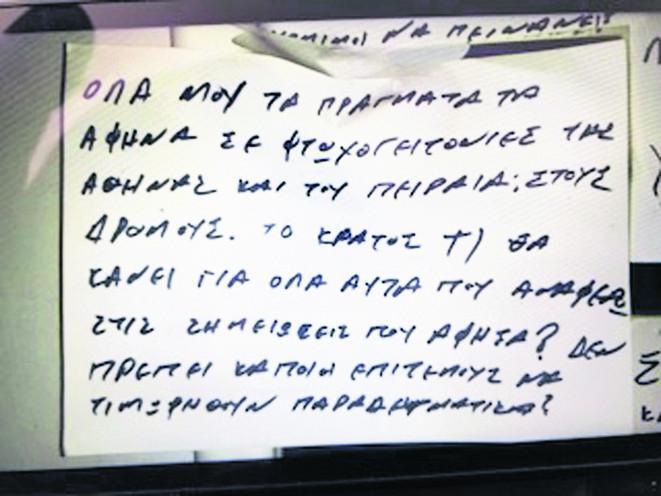 ΝΑ ΠΕΙΝΑΝΕ
ΟΛΑ ΜΟΥ ΤΑ ΠΡΑΓΜΑΤΑ ΤΑ
ΑΦΗΝΑ ΣΕ ΦΤΩΧΟΓΕΙΤΟΝΙΕΣ ΤΗΣ
ΑΘΗΝΑΣ ΚΑΙ ΤΟΥ ΠΕΙΡΑΙΑ, ΣΤΟΥΣ
ΔΡΟΜΟΥΣ. ΤΟ ΚΡΑΤΟΣ ΤΙ ΘΑ
ΚΑΝΕΙ ΓΙΑ ΟΛΑ ΑΥΤΑ ΠΟΥ ΑΝΑΦΕΡΩ
ΣΤΙΣ ΣΗΜΕΙΩΣΕΙΣ ΠΟΥ ΑΦΗΣΑ? ΔΕΝ
ΠΡΕΠΕΙ ΚΑΠΟΙΟΙ ΕΠΙΤΕΛΟΥΣ ΝΑ
ΤΙΜΩΡΗΘΟΥΝ ΠΑΡΑΔΕΙΓΜΑΤΙΚΑ?